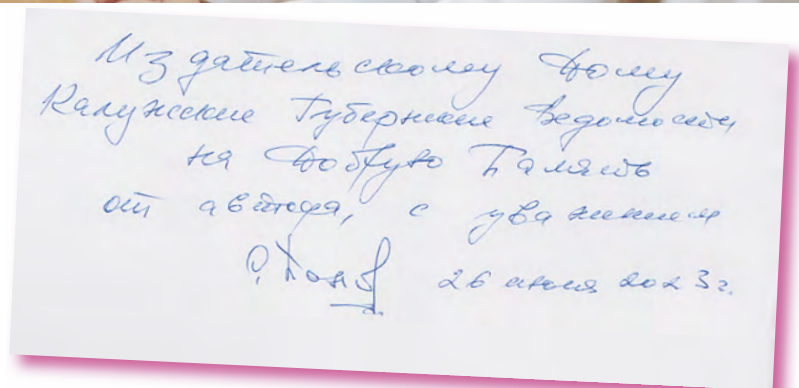 Издательскому Дому
Калужские Губернские Ведомости
на Добрую Память
от автора, с уважением
26 июля 2023г.